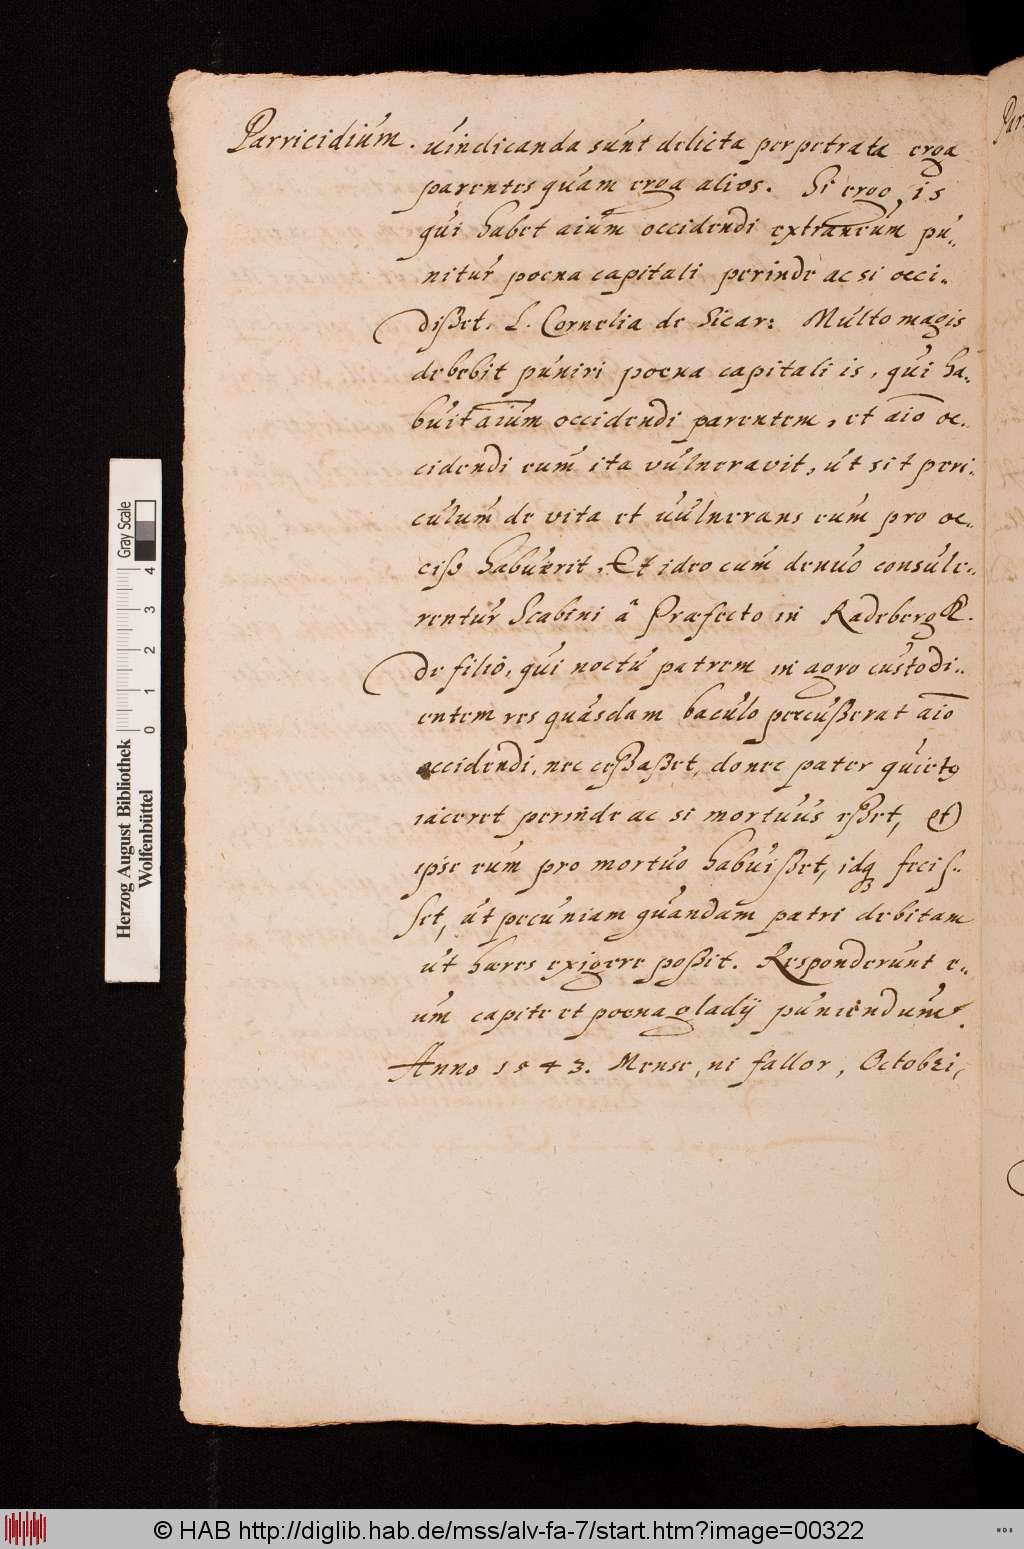 Parricidium. vindicanda sunt delicta perpetrata erga
parentes quam erga alios. Si ergo, is
qui habet aium occidendi extraneum pu-
nitur poena capitali perinde ac si occi-
dißet. L. Cornelia de Sicar: Multo magis
debebit puniri poena capitali is, qui ha-
buit aium occidendi parentem, et aio oc-
cidendi eum ita vulneravit, ut sit peri-
culum de vita et vulnerans eum pro oc-
ciso habuerit. Et ideo cum denuo consule-
rentur Scabini â Præfecto in Radeberg
de filio, qui noctu patrem in agro custodi-
entem res quasdam baculo percußerat aio
occidendi, nec ceßaßet, donec pater quietus
iaceret perinde ac si mortuus eßet, et
ipse eum pro mortuo habuißet, idq feciſ-
set, ut pecuniam quandam patri debitam
ut hæres exigere poßit. Responderunt e-
um capite et poena gladij puniendum.
Anno 1543. Mense, ni fallor, Octobri,
Gray Scale
0 1 2 3 4
Herzog August Bibliothek
Wolfenbüttel
© HAB http://diglib.hab.de/mss/alv-fa-7/start.htm?image=00322